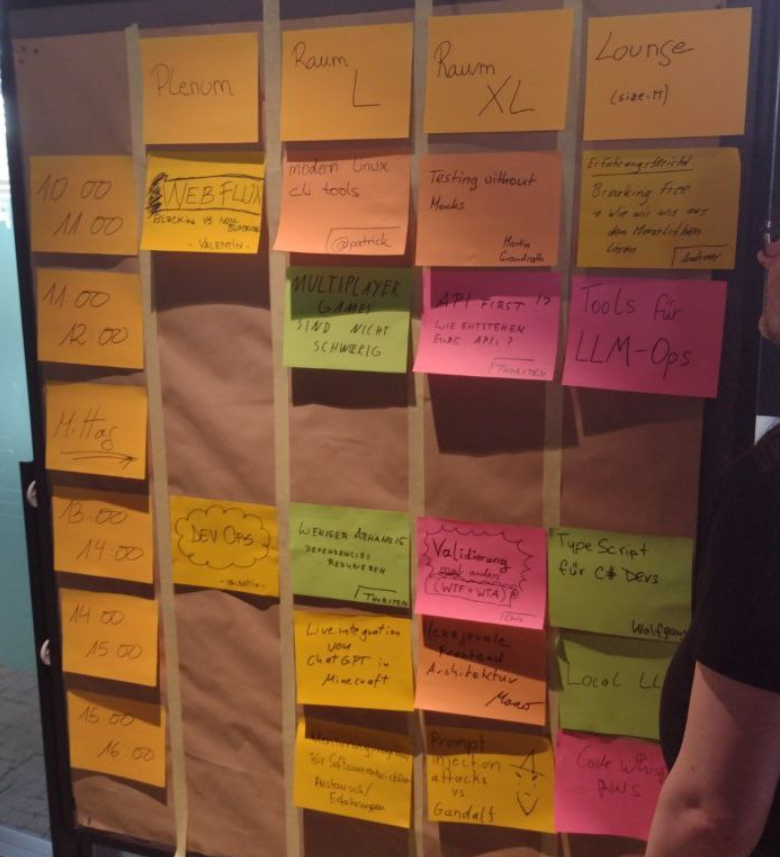 Plenum
Raum
L
Raum
XL
Lounge
(size. M)
10 00
11 00
WEBFLUX
BLOCKING VS NON
BLOCKING
- VALENTIN -
modern linux
cli tools
@patrick
Testing without
Mocks
Martin
Erfahrungsbericht
Breaking Free
+ Wie wir uns aus
den Monolithen
lösen
Andreas
11 00
12 00
MULTIPLAYER
GAMES
SIND NICHT
SCHWIERIG
API FIRST !?
WIE ENTSTEHEN
EURE APIs ?
THORSTEN
Tools für
LLM-Ops
Mittag
13 00
14 00
DEV OPS
- VALENTIN -
WENIGER
DEPENDENCIES
REDUZIEREN
THORSTEN
Validierung
mal anders
(WTF + WTA)
TypeScript
für C# Devs
Wolfgang
14 00
15 00
Live integration
von
ChatGPT in
Minecraft
Hexagonale
Frontend
Architektur
Marco
Local LL
15 00
16 00
für Softwareentwickler
Austausch/
Erfahrungen
Prompt
injection
attacks
vs
Gandalf
Code Whisp
AWS